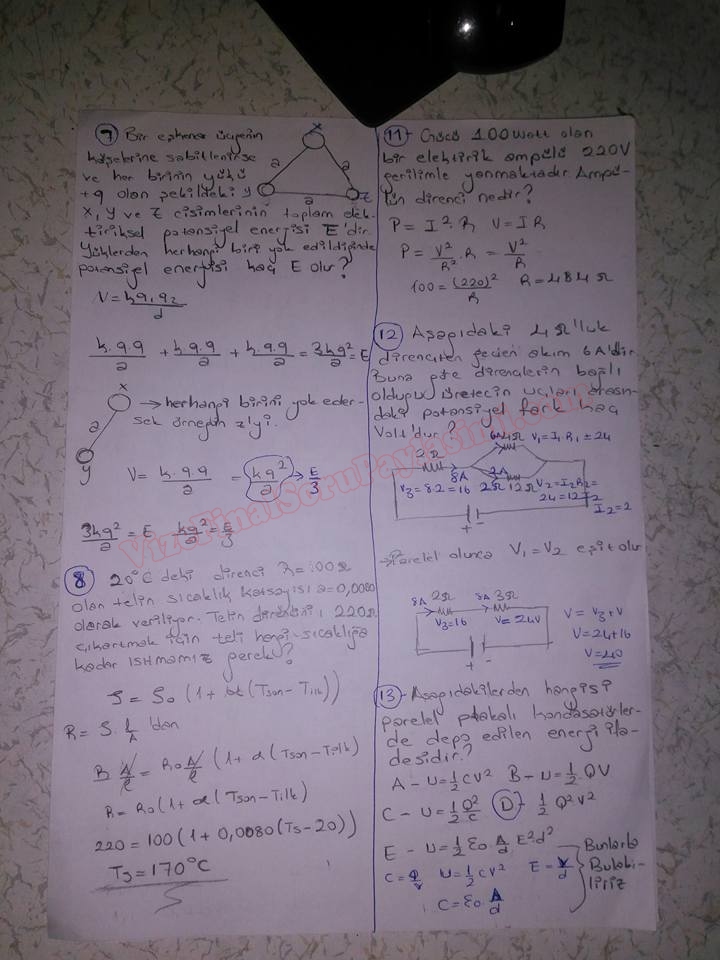 7 Bir eşkenar üçgenin
köşelerine sabitlenirse
ve her birinin yükü
+q olan şekildeki y
x, y ve z cisimlerinin toplam elek-
tiriksel potansiyel energisi E'dir.
Yüklerden herhangi biri yok edildiğinde
potansiyel energisi kaç E olur?
x
a
a
a
z
V = kq1q2/d
k.q.q/a + k.q.q/a + k.q.q/a = 3kq²/a = E
x
a
y
→ herhangi birini yok eder-
sek örneğin z'yi.
V = k.q.q/a = kq²/a → E/3
3kq²/a = E kq²/a = E/3
8 20°C deki direnci R=100Ω
olan telin sıcaklık katsayısı a=0,0080
olarak veriliyor. Telin direncini 220Ω
çıkartmak için teli hangi sıcaklığa
kadar ısıtmamız gerekir?
ρ = ρ0 (1 + α(Tson-Tilk))
R = ρ.L/A 'dan
R A/l = R0 A/l (1 + α(Tson-Tilk)
R = R0(1 + α(Tson-Tilk)
220 = 100(1 + 0,0080(Ts-20))
Ts = 170°C
11 - Gücü 100 watt olan
bir elektirik ampülü 220V
gerilimle yanmaktadır. Ampü-
lün direnci nedir?
P = I².R V = IR
P = V²/R².R = V²/R
100 = (220)²/R R = 484Ω
12 Aşağıdaki 4Ω'luk
dirençten geçen akım 6A'dir.
Buna göre dirençlerin bağlı
olduğu üretecin uçları arasın-
daki potansiyel fark kaç
Volt'dur?
6A 4Ω V1 = I1 R1 = 24
2Ω
8A
2A
V3 = 8.2 = 16
2A 12Ω V2 = I2R2 =
24 = 12 I2
I2 = 2
+ -
→ Paralel olunca V1 = V2 eşit olur
8A 2Ω 8A 3Ω
V3 = 16 V = 24V
+ -
V = V3 + V
V = 24+16
V = 40
13 - Aşağıdakilerden hangisi
paralel plakalı kondasatörler-
de depo edilen energi ifa-
desidir?
A - U = 1/2 CV² B - U = 1/2 QV
C - U = 1/2 Q²/C D - 1/2 Q²V²
E - U = 1/2 ε0 A/d E²d²
C = Q/V U = 1/2 CV² E = V/d
C = ε0 A/d
Bunlarla
Bulabi-
liriz
VizeFinalSoruPaylasimi.com